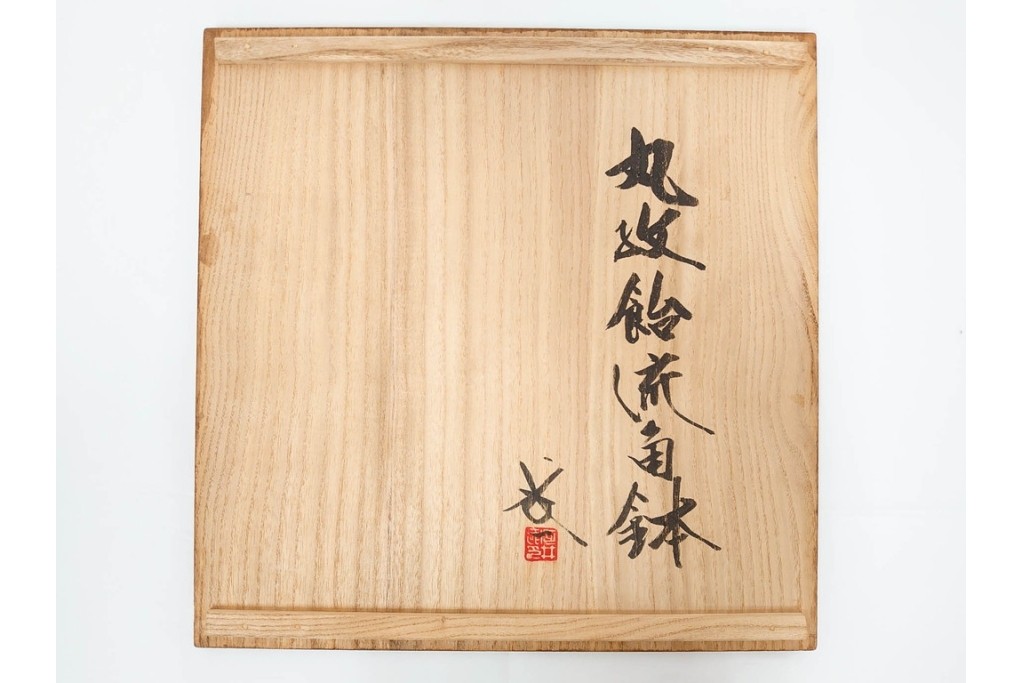 丸紋飴流角鉢